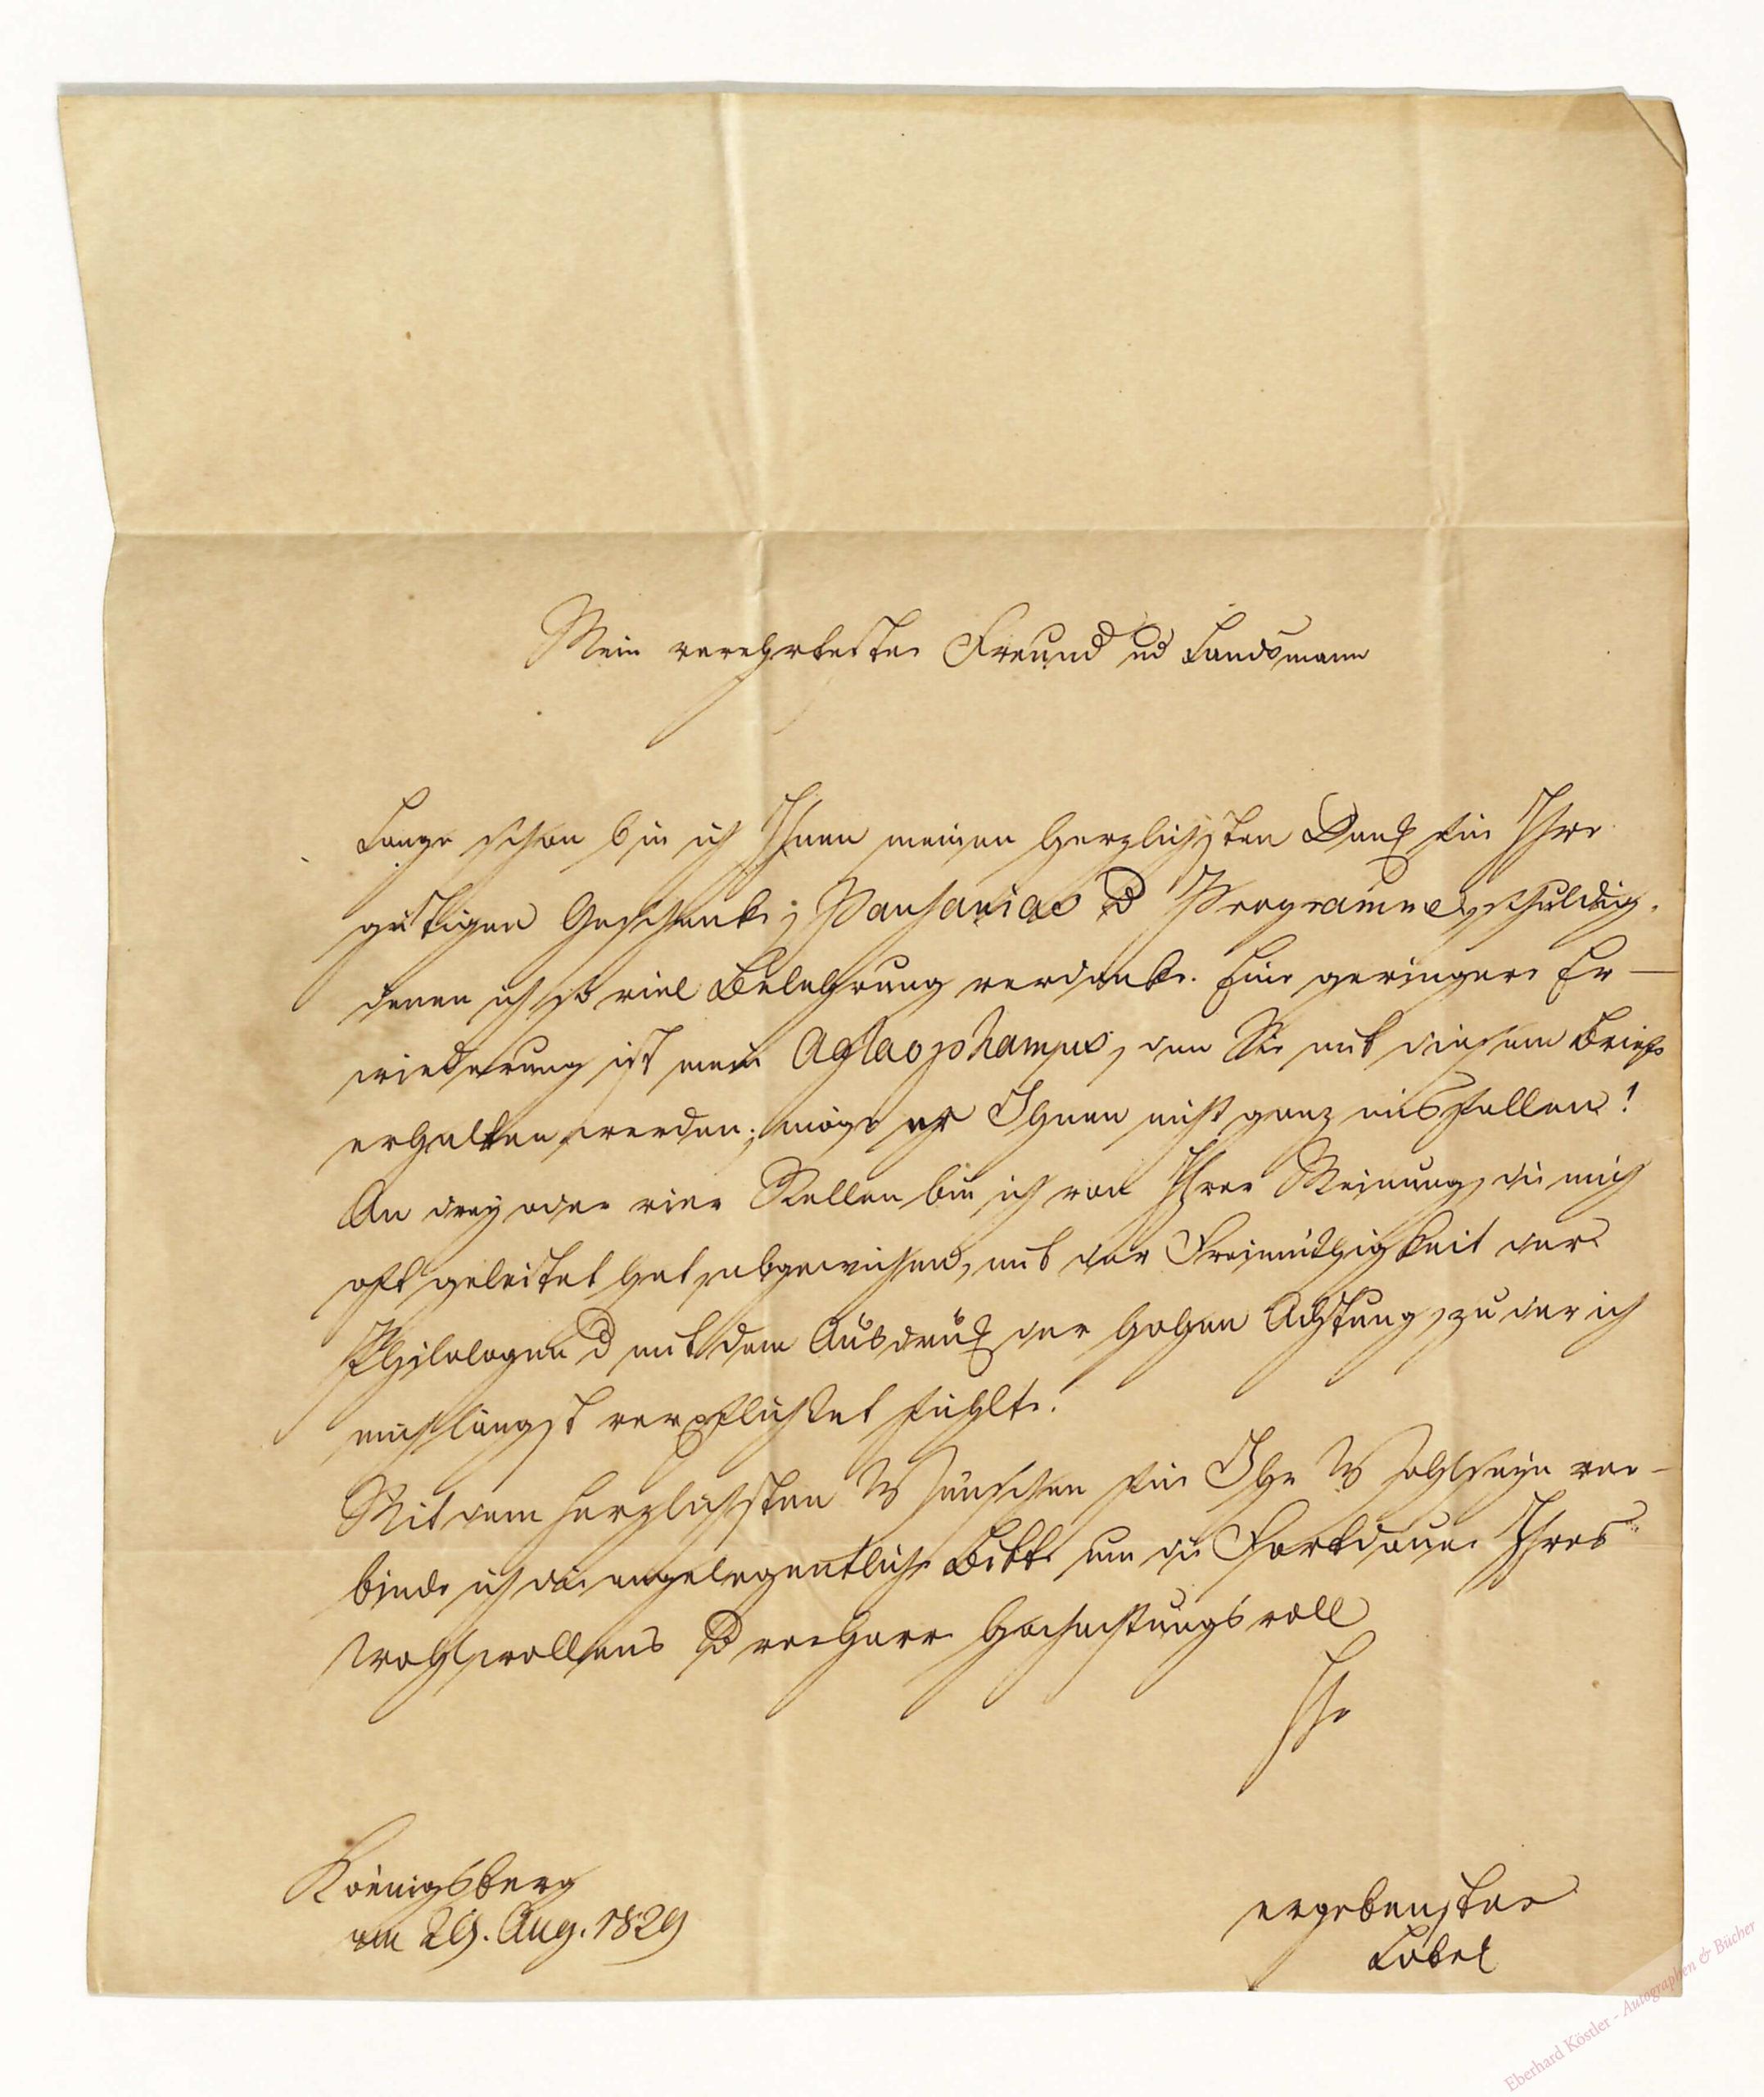 Mein verehrtester Freund ud Landsmann
Lange schon bin ich Ihnen meinen herzlichsten Dank für Ihre
gütigen Geschenke, Pausanias u Programme, schuldig,
denen ich so viel Belehrung verdanke. Eine geringere Er–
wiederung ist mein Aglaophamus, den Sie mit diesem Briefe
erhalten werden; möge er Ihnen nicht ganz misfallen!
An drey oder vier Stellen bin ich von Ihrer Meinung, die mich
oft geleitet hat, abgewichen, mit der Freimüthigkeit der
Philologen u mit dem Ausdruk der hohen Achtung, zu der ich
mich längst verpflichtet fühlte.
Mit dem herzlichsten Wünschen für Ihr Wohlseyn ver–
binde ich die angelegentliche Bitte um die Fortdauer Ihres
Wohlwollens u verharre hochachtungsvoll
Ihr
Koenigsberg
am 29. Aug. 1829
ergebenster
Lobek
Eberhard Köstler - Autographen & Bücher